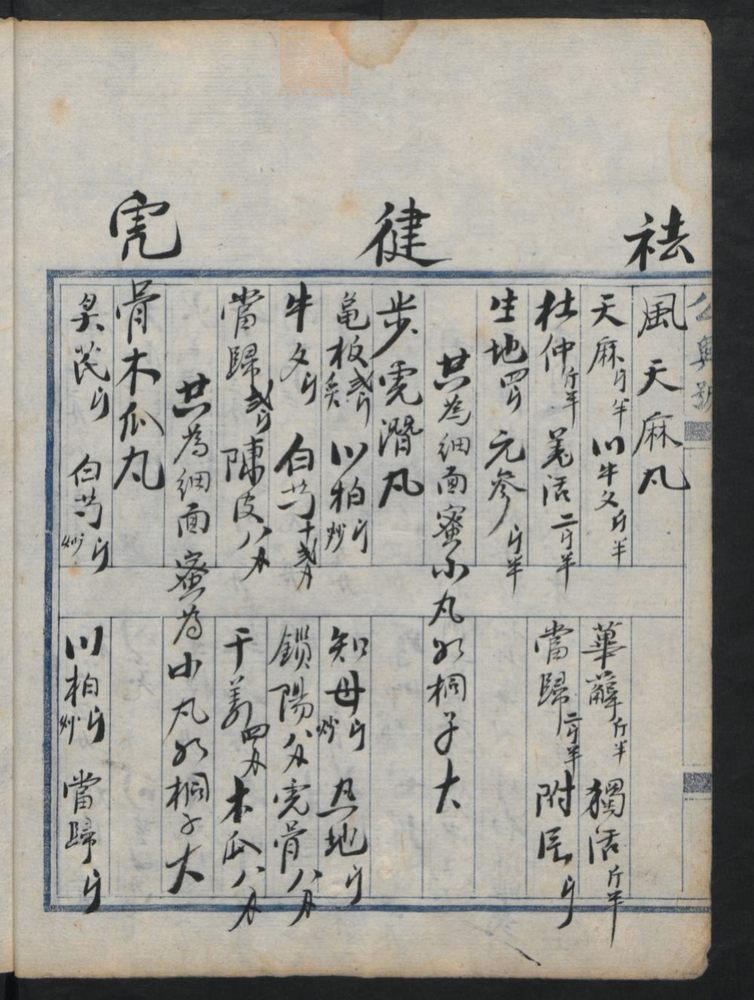 祛風天麻丸
天麻斤半 川牛夕斤半 萆薢斤半 獨活斤半
杜仲斤半 羌活二斤半 當歸二斤半 附片斤
生地四斤 元參斤半
共為細面蜜小丸如桐子大
健步虎潛丸
龜板炙 川柏炒斤 知母炒斤 熟地斤
牛夕斤 白芍 鎖陽八分 虎骨八分
當歸 陳皮八分 干姜四分 木瓜八分
共為細面蜜為小丸如桐子大
虎骨木瓜丸
炙芪斤 白芍炒斤 川柏炒斤 當歸斤